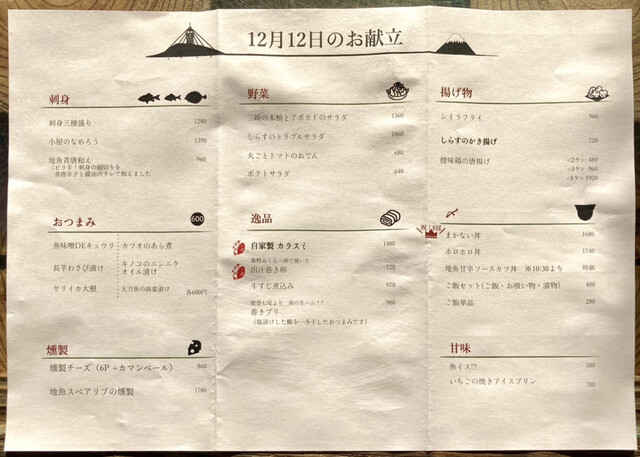 12月12日のお献立
刺身
刺身三種盛り 1280
小屋のなめろう 1390
地魚青唐和え 960
(ピリ辛!刺身の細切りを
青唐辛子と醤油のタレで和えました
おつまみ 600
魚味噌DEキュウリ
長芋わさび漬け
ヤリイカ大根
カツオのあら煮
キノコのニンニク
オイル漬け
太刀魚の南蛮漬け 各600円
燻製
燻製チーズ(6P+カマンベール) 860
地魚スペアリブの燻製 1780
野菜
三崎の本鮪とアボカドのサラダ 1360
しらすのトリプルサラダ 1060
丸ごとトマトのおでん 680
ポテトサラダ 640
逸品
自家製 カラスミ 1480
出汁巻き卵 720
牛すじ煮込み 970
能登七尾より 海の生ハム!?
巻きブリ 980
(塩漬けした鰤を一冬干したおつまみです)
揚げ物
シイラフライ 960
しらすのかき揚げ 720
健味鶏の唐揚げ <2ケ> 480
<4ケ> 960
<8ケ> 1920
〆
まかない丼 1680
ホロホロ丼 1740
地魚甘辛ソースカツ丼 ※10:30より 時価
ご飯セット(ご飯・お吸い物・漬物) 480
ご飯単品 280
甘味
魚イス!? 500
いちごの焼きアイスプリン 780